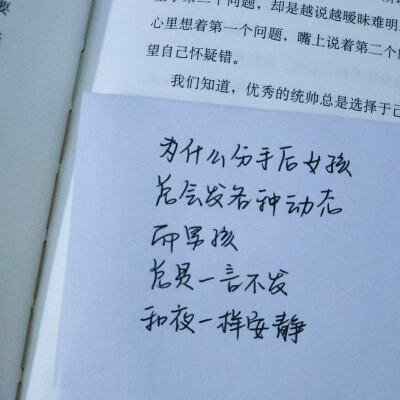 第二个问题，却是越说越暧昧难明
心里想着第一个问题，嘴上说着第二个问
望自己怀疑错。
我们知道，优秀的统帅总是选择于己
要
为什么分手后女孩
总会发各种动态
而男孩
总是一言不发
和夜一样安静